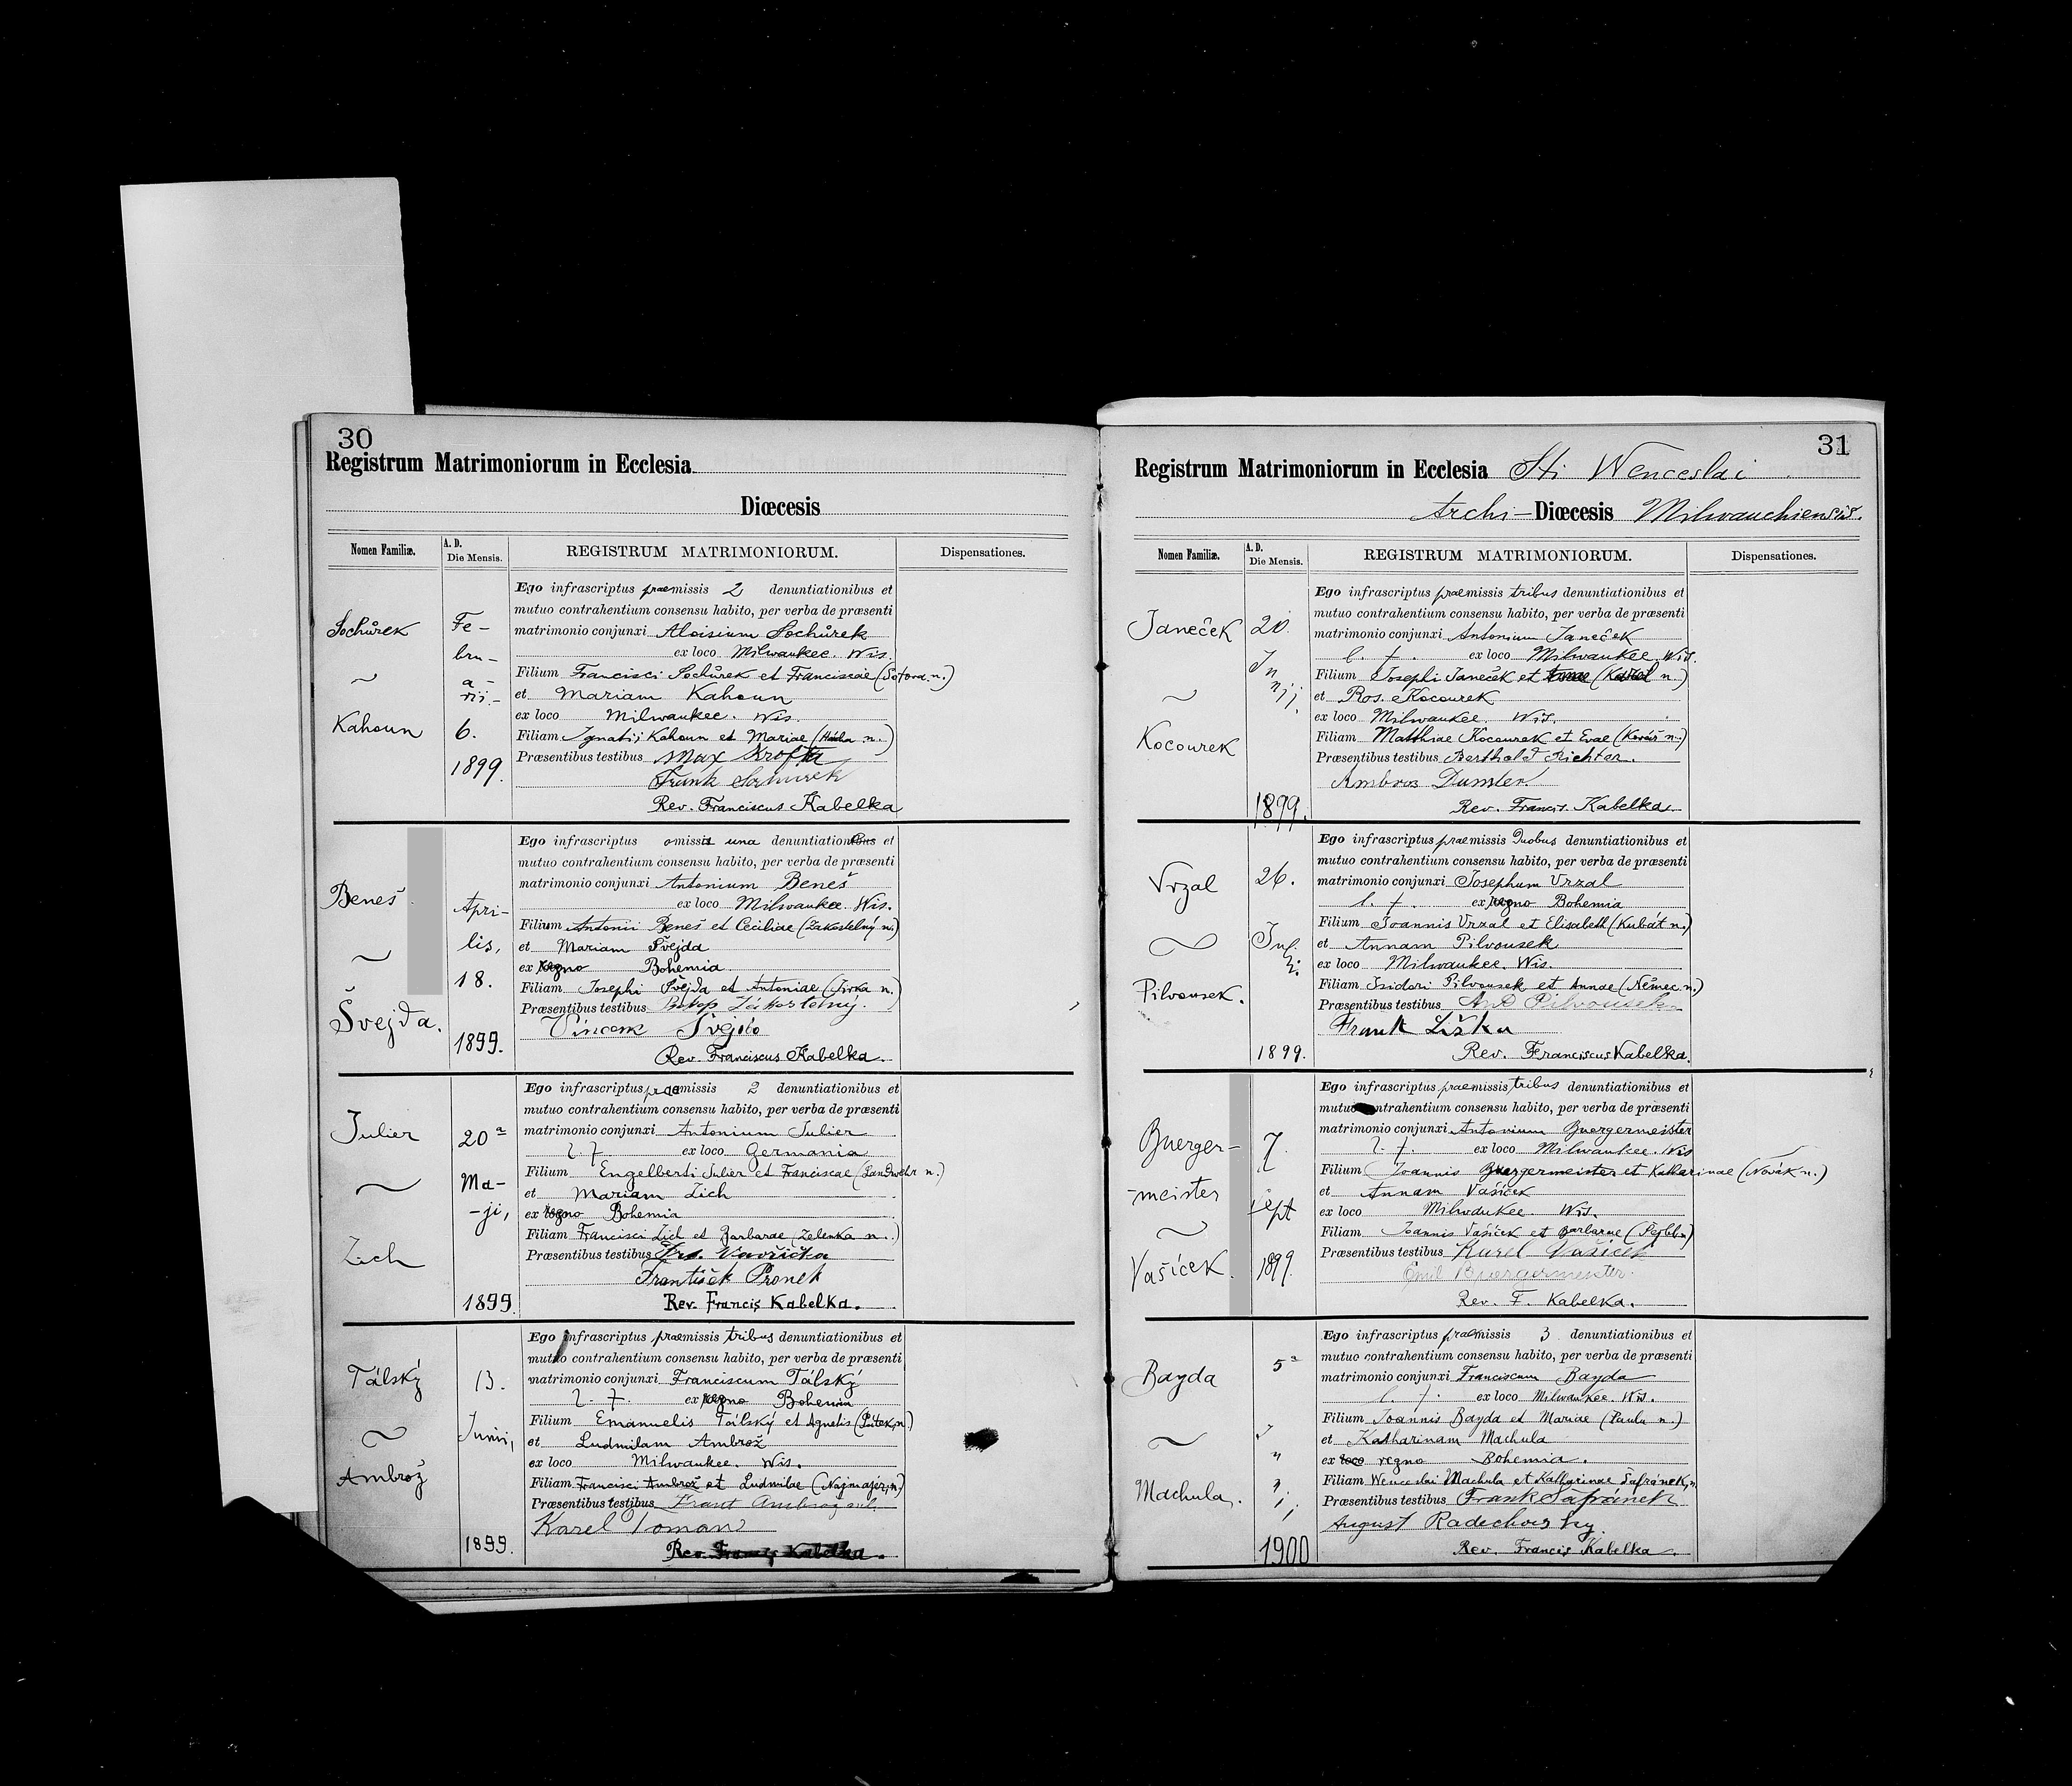 30
Registrum Matrimoniorum in Ecclesia
Diœcesis
Nomen Familiæ.
A. D.
Die Mensis.
REGISTRUM MATRIMONIORUM.
Dispensationes.
Sochůrek
~
Kahoun
Fe-
bru-
a-
rii.-
6.
1899.
Ego infrascriptus praemissis 2 denuntiationibus et
mutuo contrahentium consensu habito, per verba de præsenti
matrimonio conjunxi Aloisium Sochůrek
ex loco Milwaukee. Wis.
Filium Francisci Sochůrek et Franciscae (Sofova n.)
et Mariam Kahoun
ex loco Milwaukee. Wis.
Filiam Ignatii Kahoun et Mariae (n.)
Præsentibus testibus Max Krofta
Frank Sochurek
Rev. Franciscus Kabelka
Beneš
~
Švejda.
Apri-
lis,
18.
1899.
Ego infrascriptus omissis una denuntiationibus et
mutuo contrahentium consensu habito, per verba de præsenti
matrimonio conjunxi Antonium Beneš
ex loco Milwaukee. Wis.
Filium Antonii Beneš et Ceciliae (Zakostelný n.)
et Mariam Švejda
ex regno Bohemia
Filiam Josephi Švejda et Antoniae (Jirka n.)
Præsentibus testibus Prokop Zákostelný.
Vincenc Švejda
Rev. Franciscus Kabelka.
Julier
~
Zich
20ª
Ma-
-ji,
1899
Ego infrascriptus praemissis 2 denuntiationibus et
mutuo contrahentium consensu habito, per verba de præsenti
matrimonio conjunxi Antonium Julier
l. f. ex loco Germania
Filium Engelberti Julier et Franciscae (Landwehr n.)
et Mariam Zich
ex regno Bohemia
Filiam Francisci Zich et Barbarae (Zelenka n.)
Præsentibus testibus Frs. Vavřička
František Pronek
Rev. Francis Kabelka.
Tálský
~
Ambrož
13.
Junii,
1899.
Ego infrascriptus praemissis tribus denuntiationibus et
mutuo contrahentium consensu habito, per verba de præsenti
matrimonio conjunxi Franciscum Tálský
l. f. ex regno Bohemia
Filium Emanuelis Tálský et Agnetis (Pátek, n.)
et Ludmilam Ambrož
ex loco Milwaukee. Wis.
Filiam Francisci Ambrož et Ludmilae (Najmajer, n.)
Præsentibus testibus Frant Ambrož ml.
Karel Toman
Rev. Francis Kabelka.
31
Registrum Matrimoniorum in Ecclesia Sti Wenceslai
Archi-Diœcesis Milwauchiensis.
Nomen Familiæ.
A. D.
Die Mensis.
REGISTRUM MATRIMONIORUM.
Dispensationes.
Janeček
~
Kocourek
20.
Junii.
1899.
Ego infrascriptus praemissis tribus denuntiationibus et
mutuo contrahentium consensu habito, per verba de præsenti
matrimonio conjunxi Antonium Janeček
l. f. ex loco Milwaukee. Wis.
Filium Josephi Janeček et (n.)
et Ros. Kocourek
ex loco Milwaukee. Wis.
Filiam Matthiae Kocourek et Evae (Kovář n.)
Præsentibus testibus Berthold Richter.
Ambros Dumler.
Rev. Francis. Kabelka.
Vrzal
~
Pilvousek.
26.
Julii.
1899.
Ego infrascriptus praemissis duobus denuntiationibus et
mutuo contrahentium consensu habito, per verba de præsenti
matrimonio conjunxi Josephum Vrzal
l. f. ex regno Bohemia
Filium Joannis Vrzal et Elisabeth (Kubát n.)
et Annam Pilvousek
ex loco Milwaukee. Wis.
Filiam Isidori Pilvousek et Annae (Němec n.)
Præsentibus testibus And Pilvousek
Frank Liška
Rev. Franciscus Kabelka.
Buerger-
-meister
~
Vašíček.
7.
Sept
1899.
Ego infrascriptus praemissis, tribus denuntiationibus et
mutuo contrahentium consensu habito, per verba de præsenti
matrimonio conjunxi Antonium Buergermeister
l. f. ex loco Milwaukee. Wis
Filium Joannis Buergermeister et Katharinae (Novák n.)
et Annam Vašíček
ex loco Milwaukee. Wis.
Filiam Joannis Vašíček et Barbarae (n)
Præsentibus testibus Karel Vašíček
Emil Buergermeister.
Rev. F. Kabelka.
Bayda
~
Machula.
5ª
Junii,
1900
Ego infrascriptus praemissis 3 denuntiationibus et
mutuo contrahentium consensu habito, per verba de præsenti
matrimonio conjunxi Franciscum Bayda
l. f. ex loco Milwaukee. Wis.
Filium Joannis Bayda et Mariae (Paula n.)
et Katharinam Machula
ex loco regno Bohemia.
Filiam Wenceslai Machula et Katharinae Šafránek, n.
Præsentibus testibus Frank Šafránek
August Radechovsky.
Rev. Francis Kabelka.